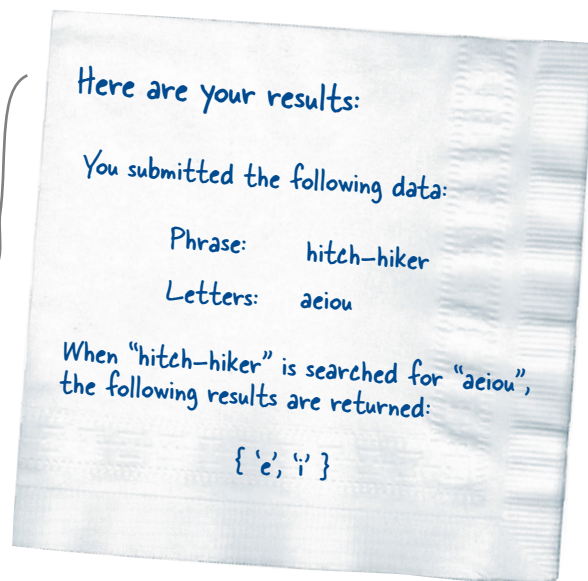 Here are your results:
You submitted the following data:
Phrase: hitch-hiker
Letters: aeiou
When “hitch-hiker” is searched for “aeiou”,
the following results are returned:
{ ‘e’, ‘i’ }